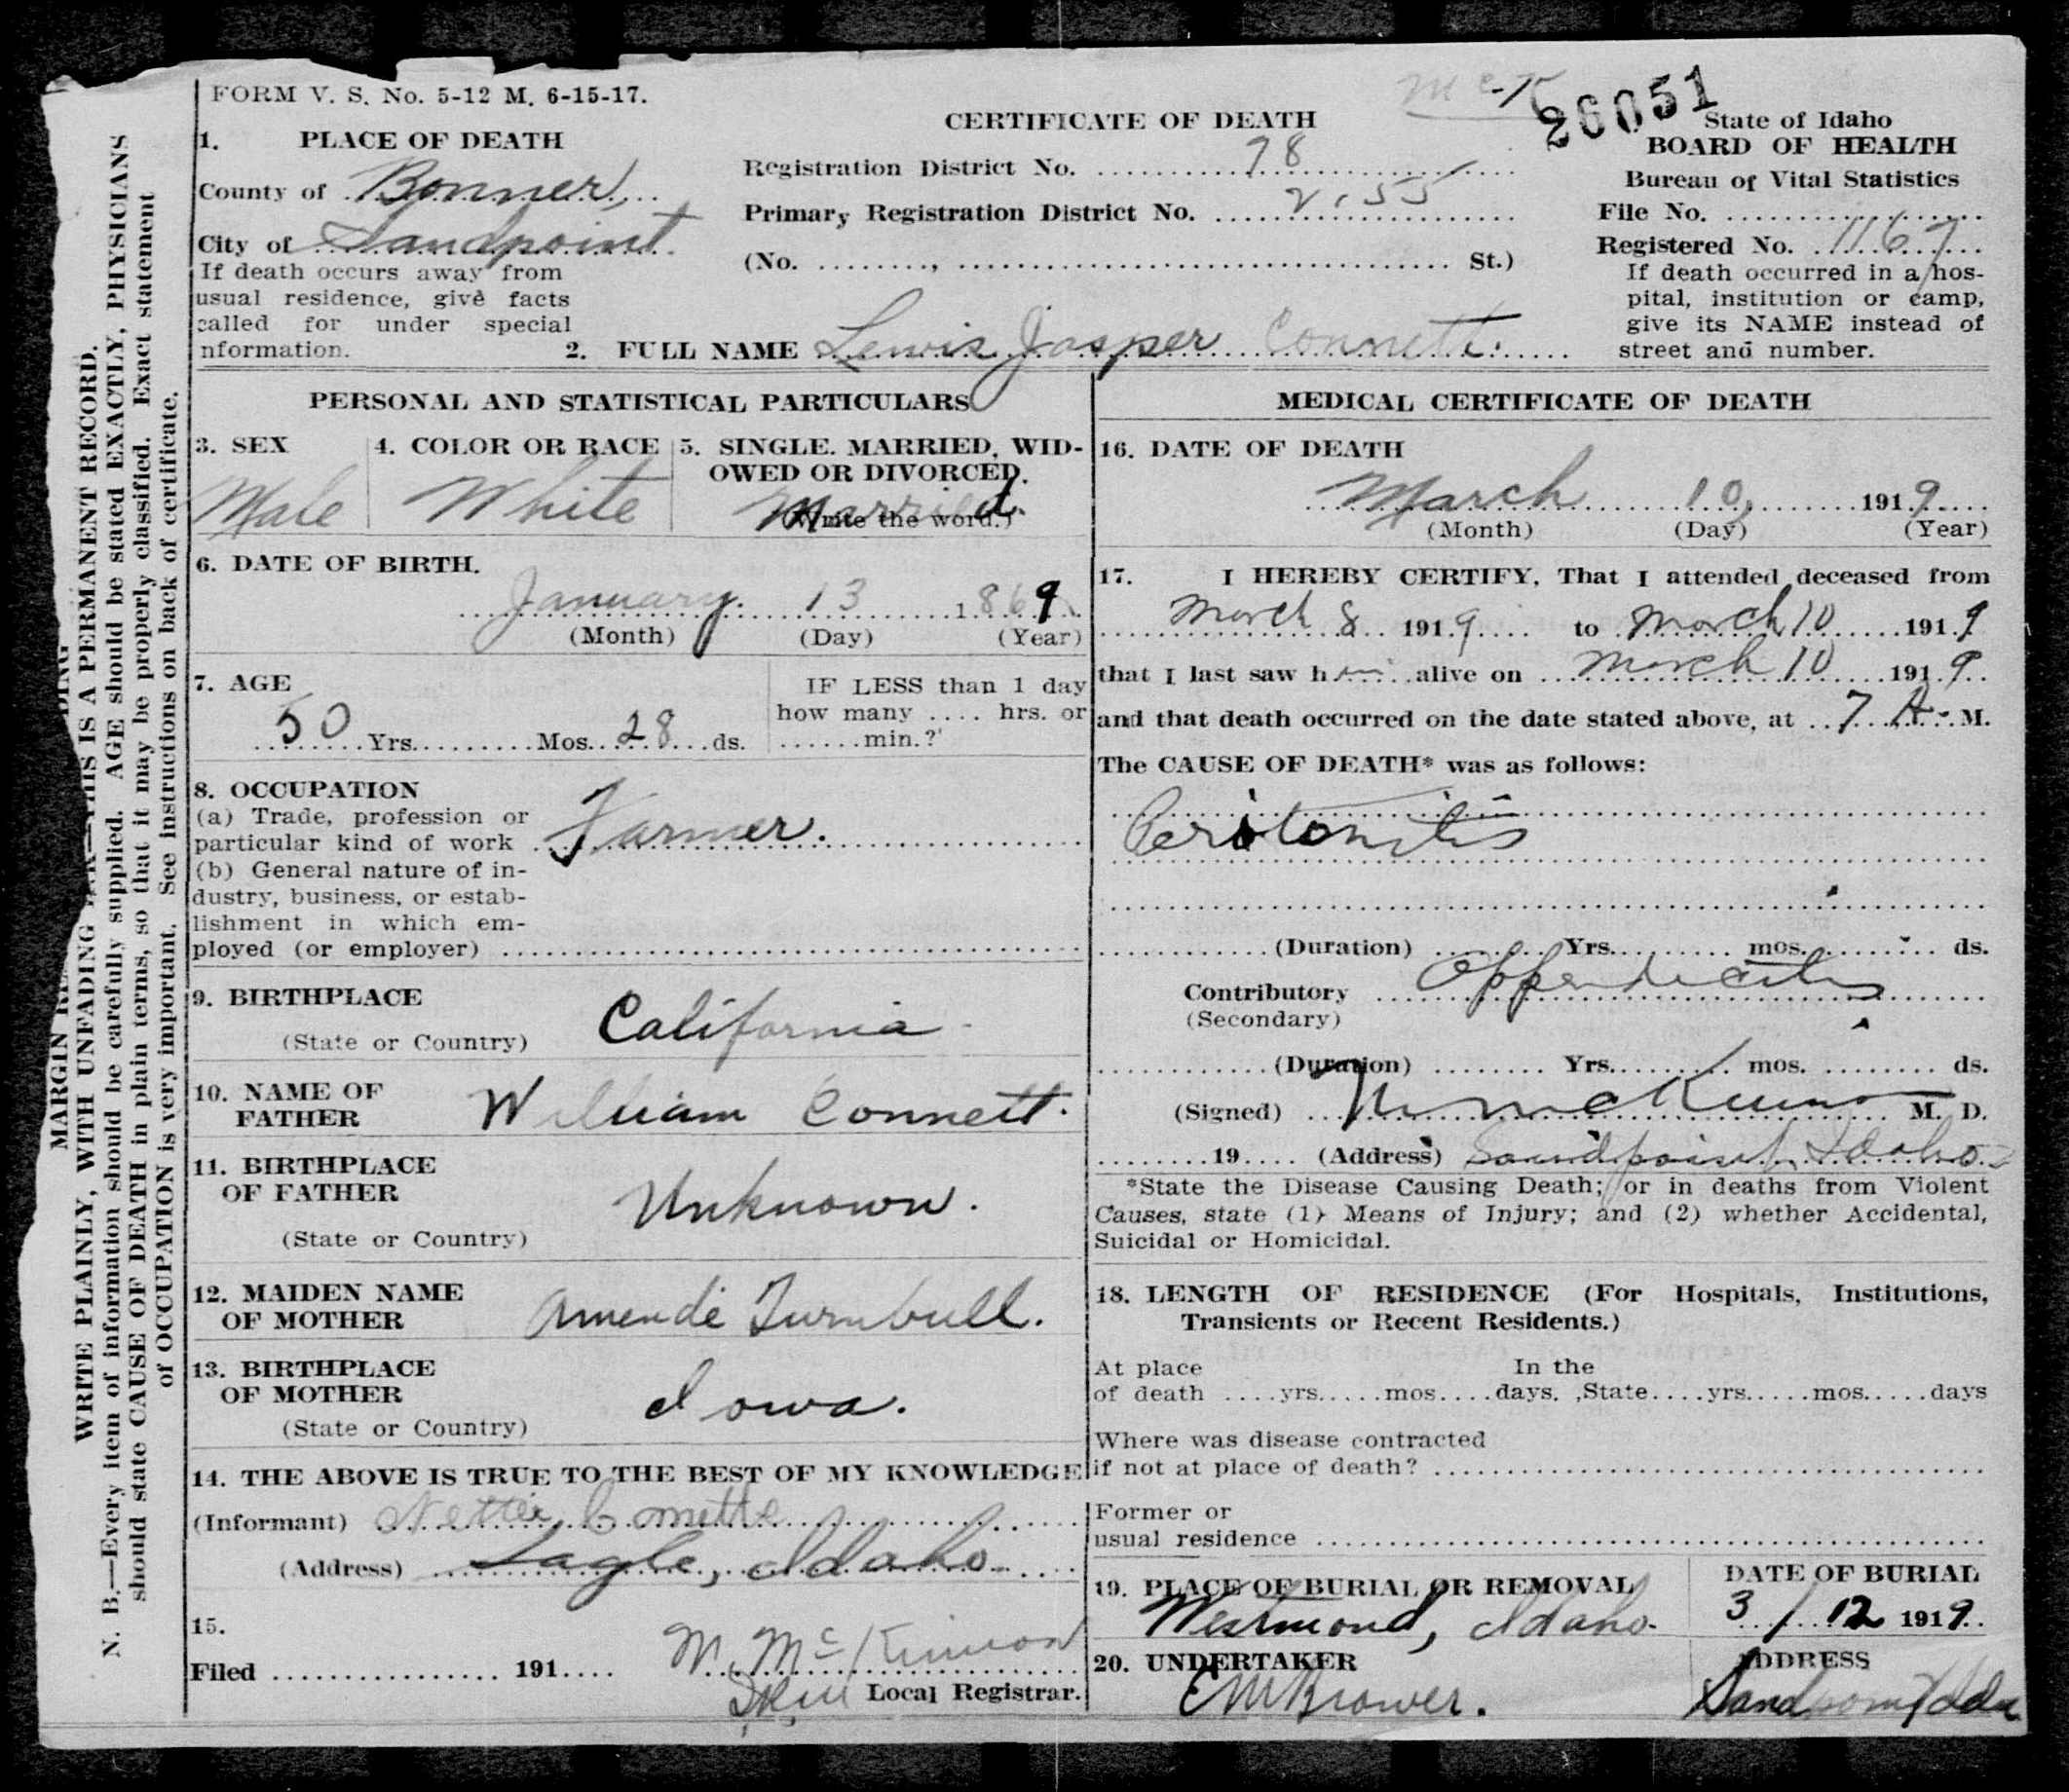 FORM V. S. No. 5-12 M. 6-15-17.
26051
CERTIFICATE OF DEATH
State of Idaho
BOARD OF HEALTH
Bureau of Vital Statistics
File No. ....................
Registered No. 1167
If death occurred in a hos-
pital, institution or camp,
give its NAME instead of
street and number.
1. PLACE OF DEATH
County of Bonner,
City of Sandpoint
If death occurs away from
usual residence, give facts
called for under special
nformation.
Registration District No. 78
Primary Registration District No.
(No. ........., ................................... St.)
2. FULL NAME Lewis Jasper Connett.
PERSONAL AND STATISTICAL PARTICULARS
3. SEX
Male
4. COLOR OR RACE
White
5. SINGLE. MARRIED, WID-
OWED OR DIVORCED.
Married.
(Write the word.)
6. DATE OF BIRTH.
January. 13 1869
(Month) (Day) (Year)
7. AGE
50 Yrs. Mos. 28 ds.
IF LESS than 1 day
how many .... hrs. or
......min.?
8. OCCUPATION
(a) Trade, profession or
particular kind of work Farmer.
(b) General nature of in-
dustry, business, or estab-
lishment in which em-
ployed (or employer) ....................
9. BIRTHPLACE
(State or Country) California
10. NAME OF
FATHER William Connett.
11. BIRTHPLACE
OF FATHER Unknown.
(State or Country)
12. MAIDEN NAME
OF MOTHER Amende Turnbull.
13. BIRTHPLACE
OF MOTHER Iowa.
(State or Country)
14. THE ABOVE IS TRUE TO THE BEST OF MY KNOWLEDGE
(Informant) Nettie
(Address) Sagle, Idaho
15.
Filed ................ 191.... McKinnon
Local Registrar.
MEDICAL CERTIFICATE OF DEATH
16. DATE OF DEATH
March 10, 1919
(Month) (Day) (Year)
17. I HEREBY CERTIFY, That I attended deceased from
March 8 1919 to March 10 1919
that I last saw him alive on March 10 1919
and that death occurred on the date stated above, at 7 A. M.
The CAUSE OF DEATH* was as follows:
Peritonitis
(Duration) ........ Yrs. ........ mos. ........ ds.
Contributory Appendicitis
(Secondary)
(Duration) ........ Yrs. ........ mos. ........ ds.
(Signed) McKinnon M. D.
........19.... (Address) Sandpoint, Idaho
*State the Disease Causing Death; or in deaths from Violent
Causes, state (1) Means of Injury; and (2) whether Accidental,
Suicidal or Homicidal.
18. LENGTH OF RESIDENCE (For Hospitals, Institutions,
Transients or Recent Residents.)
At place In the
of death ....yrs.....mos....days. ,State....yrs.....mos.....days
Where was disease contracted
if not at place of death? ....................
Former or
usual residence ....................
19. PLACE OF BURIAL OR REMOVAL
Westmond, Idaho.
DATE OF BURIAL
3 / 12 1919
20. UNDERTAKER
EM Brower.
ADDRESS
Sandpoint Ida
MARGIN
WRITE PLAINLY, WITH UNFADING INK—THIS IS A PERMANENT RECORD.
N. B.—Every item of information should be carefully supplied. AGE should be stated EXACTLY, PHYSICIANS
should state CAUSE OF DEATH in plain terms, so that it may be properly classified. Exact statement
of OCCUPATION is very important. See instructions on back of certificate.